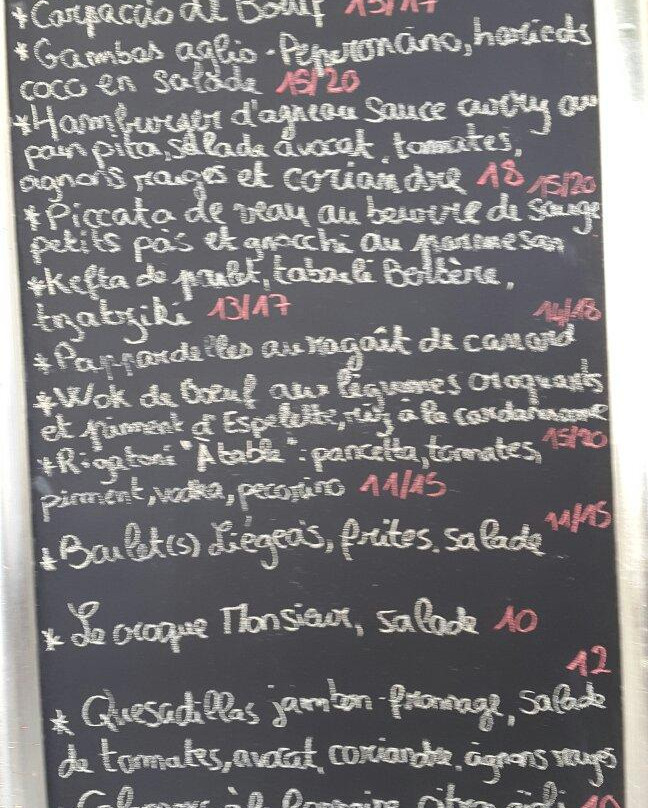 *Carpaccio de Boeuf 13/17
*Gambas aglio-Peperoncino, haricots
coco en salade 16/20
*Hamburger d'agneau sauce curry au
pain pita, salade avocat, tomates,
oignons rouges et coriandre 18 15/20
*Piccata de veau au beurre de sauge
petits pois et gnocchi au parmesan
*Kefta de poulet, taboulé Berbère,
tzatziki 13/17 14/18
*Pappardelles au ragoût de canard
*Wok de boeuf aux légumes croquants
et piment d'Espelette, riz à la cardamome
15/20
*Rigatoni "Àtable": pancetta, tomates,
piment, vodka, pecorino 11/15
11/15
*Boulet(s) Liégeois, frites. salade
*Le croque Monsieur, salade 10
12
*Quesadillas jambon-fromage, salade
de tomates, avocat, coriandre, oignons rouges